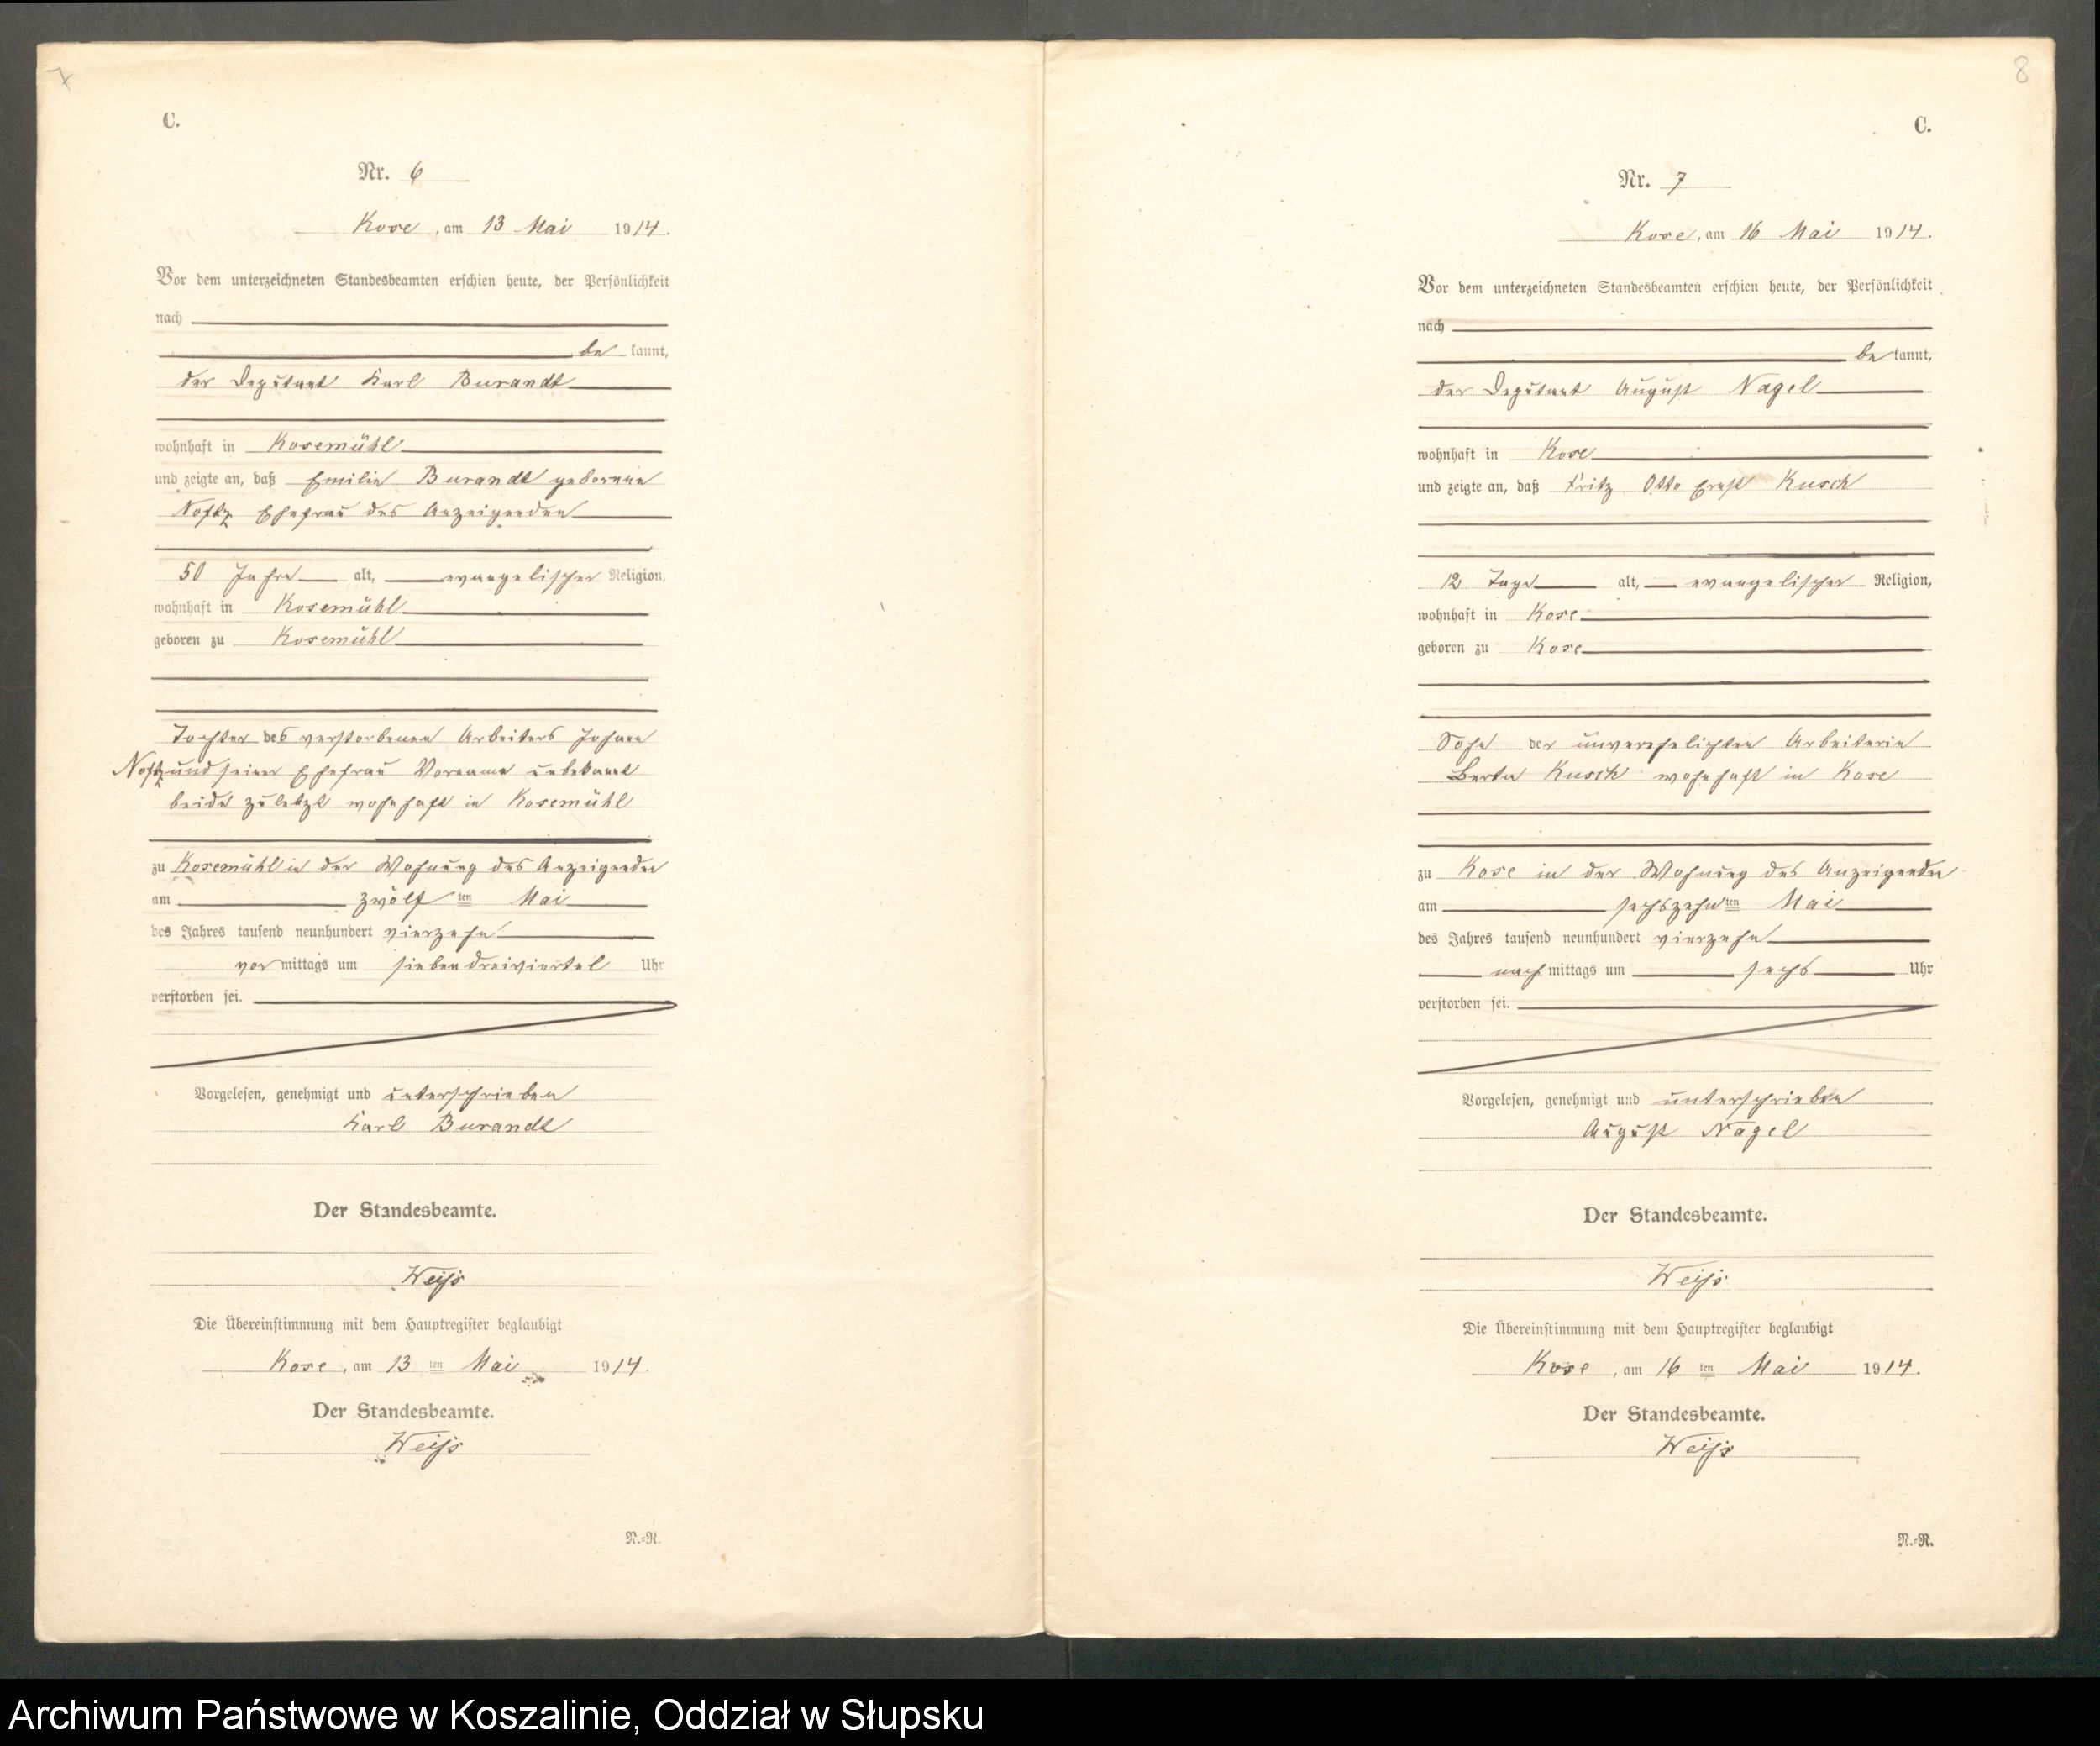 7
C.
Nr. 6
Kose, am 13 Mai 1914.
Vor dem unterzeichneten Standesbeamten erschien heute, der Persönlichkeit
nach
be kannt,
der Deputant Karl Burandt
wohnhaft in Kosemühl
und zeigte an, daß Emilie Burandt geborene
Noftz Ehefrau des Anzeigenden
50 Jahre alt, evangelischer Religion,
wohnhaft in Kosemühl
geboren zu Kosemühl
Tochter des verstorbenen Arbeiters Johann
Noftz und seiner Ehefrau Vorname unbekannt
beide zuletzt wohnhaft in Kosemühl
zu Kosemühl in der Wohnung des Anzeigenden
am zwölf ten Mai
des Jahres tausend neunhundert vierzehn
vor mittags um sieben dreiviertel Uhr
verstorben sei.
Vorgelesen, genehmigt und unterschrieben
Karl Burandt
Der Standesbeamte.
Weiß
Die Übereinstimmung mit dem Hauptregister beglaubigt
Kose, am 13 ten Mai 1914.
Der Standesbeamte.
Weiß
N.-R.
8
C.
Nr. 7
Kose, am 16 Mai 1914.
Vor dem unterzeichneten Standesbeamten erschien heute, der Persönlichkeit
nach
be kannt,
der Deputant August Nagel
wohnhaft in Kose
und zeigte an, daß Fritz Otto Ernst Kusch
12 Tage alt, evangelischer Religion,
wohnhaft in Kose
geboren zu Kose
Sohn der unverehelichten Arbeiterin
Berta Kusch wohnhaft in Kose
zu Kose in der Wohnung des Anzeigenden
am sechszehn ten Mai
des Jahres tausend neunhundert vierzehn
nach mittags um sechs Uhr
verstorben sei.
Vorgelesen, genehmigt und unterschrieben
August Nagel
Der Standesbeamte.
Weiß
Die Übereinstimmung mit dem Hauptregister beglaubigt
Kose, am 16 ten Mai 1914.
Der Standesbeamte.
Weiß
N.-R.
Archiwum Państwowe w Koszalinie, Oddział w Słupsku